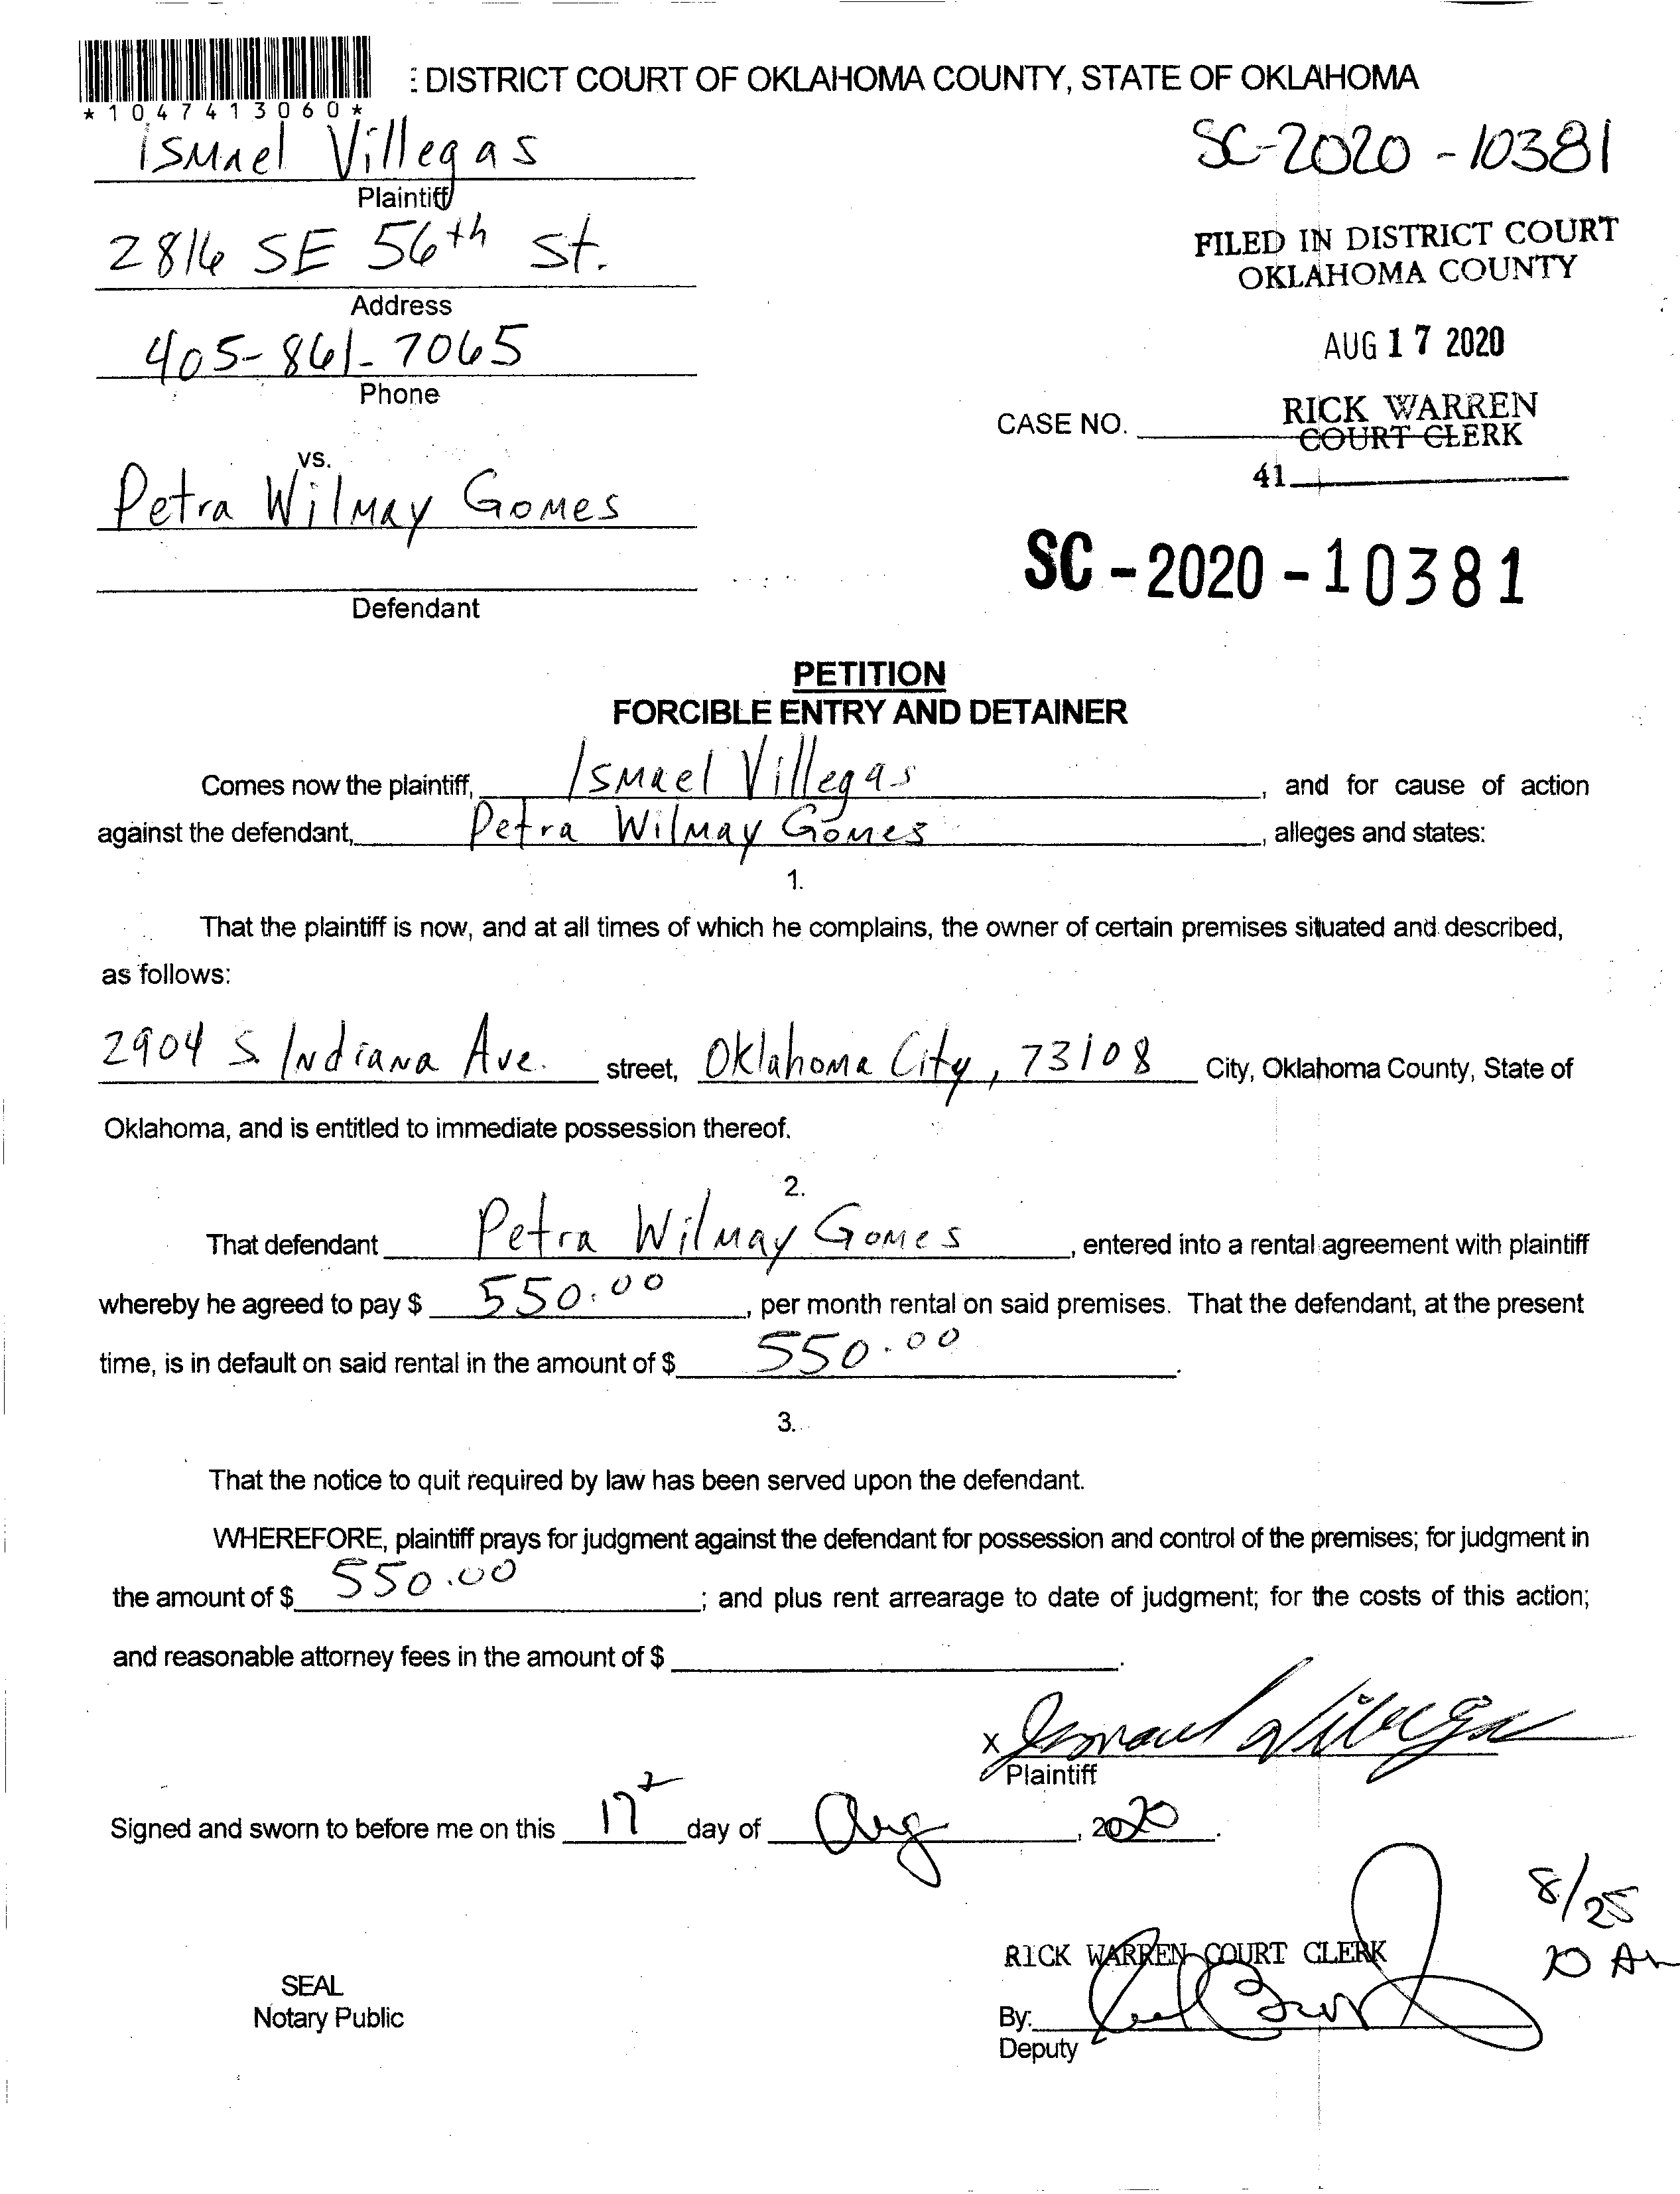 : DISTRICT COURT OF OKLAHOMA COUNTY, STATE OF OKLAHOMA
*1047413060*
Ismael Villegas
Plaintiff
SC-2020-10381
2816 SE 56th St.
Address
FILED IN DISTRICT COURT
OKLAHOMA COUNTY
405-861-7065
Phone
AUG 17 2020
CASE NO.
RICK WARREN
COURT CLERK
41
vs.
Petra Wilmay Gomes
Defendant
SC-2020-10381
PETITION
FORCIBLE ENTRY AND DETAINER
Comes now the plaintiff, Ismael Villegas, and for cause of action
against the defendant, Petra Wilmay Gomes, alleges and states:
1.
That the plaintiff is now, and at all times of which he complains, the owner of certain premises situated and described,
as follows:
2904 S. Indiana Ave. street, Oklahoma City, 73108 City, Oklahoma County, State of
Oklahoma, and is entitled to immediate possession thereof.
2.
That defendant Petra Wilmay Gomes, entered into a rental agreement with plaintiff
whereby he agreed to pay $ 550.00, per month rental on said premises. That the defendant, at the present
time, is in default on said rental in the amount of $ 550.00.
3.
That the notice to quit required by law has been served upon the defendant.
WHEREFORE, plaintiff prays for judgment against the defendant for possession and control of the premises; for judgment in
the amount of $ 550.00; and plus rent arrearage to date of judgment; for the costs of this action;
and reasonable attorney fees in the amount of $ .
X Ismael Villegas
Plaintiff
Signed and sworn to before me on this 17 day of Aug, 2020.
8/25
10 AM
RICK WARREN COURT CLERK
SEAL
Notary Public
By:
Deputy